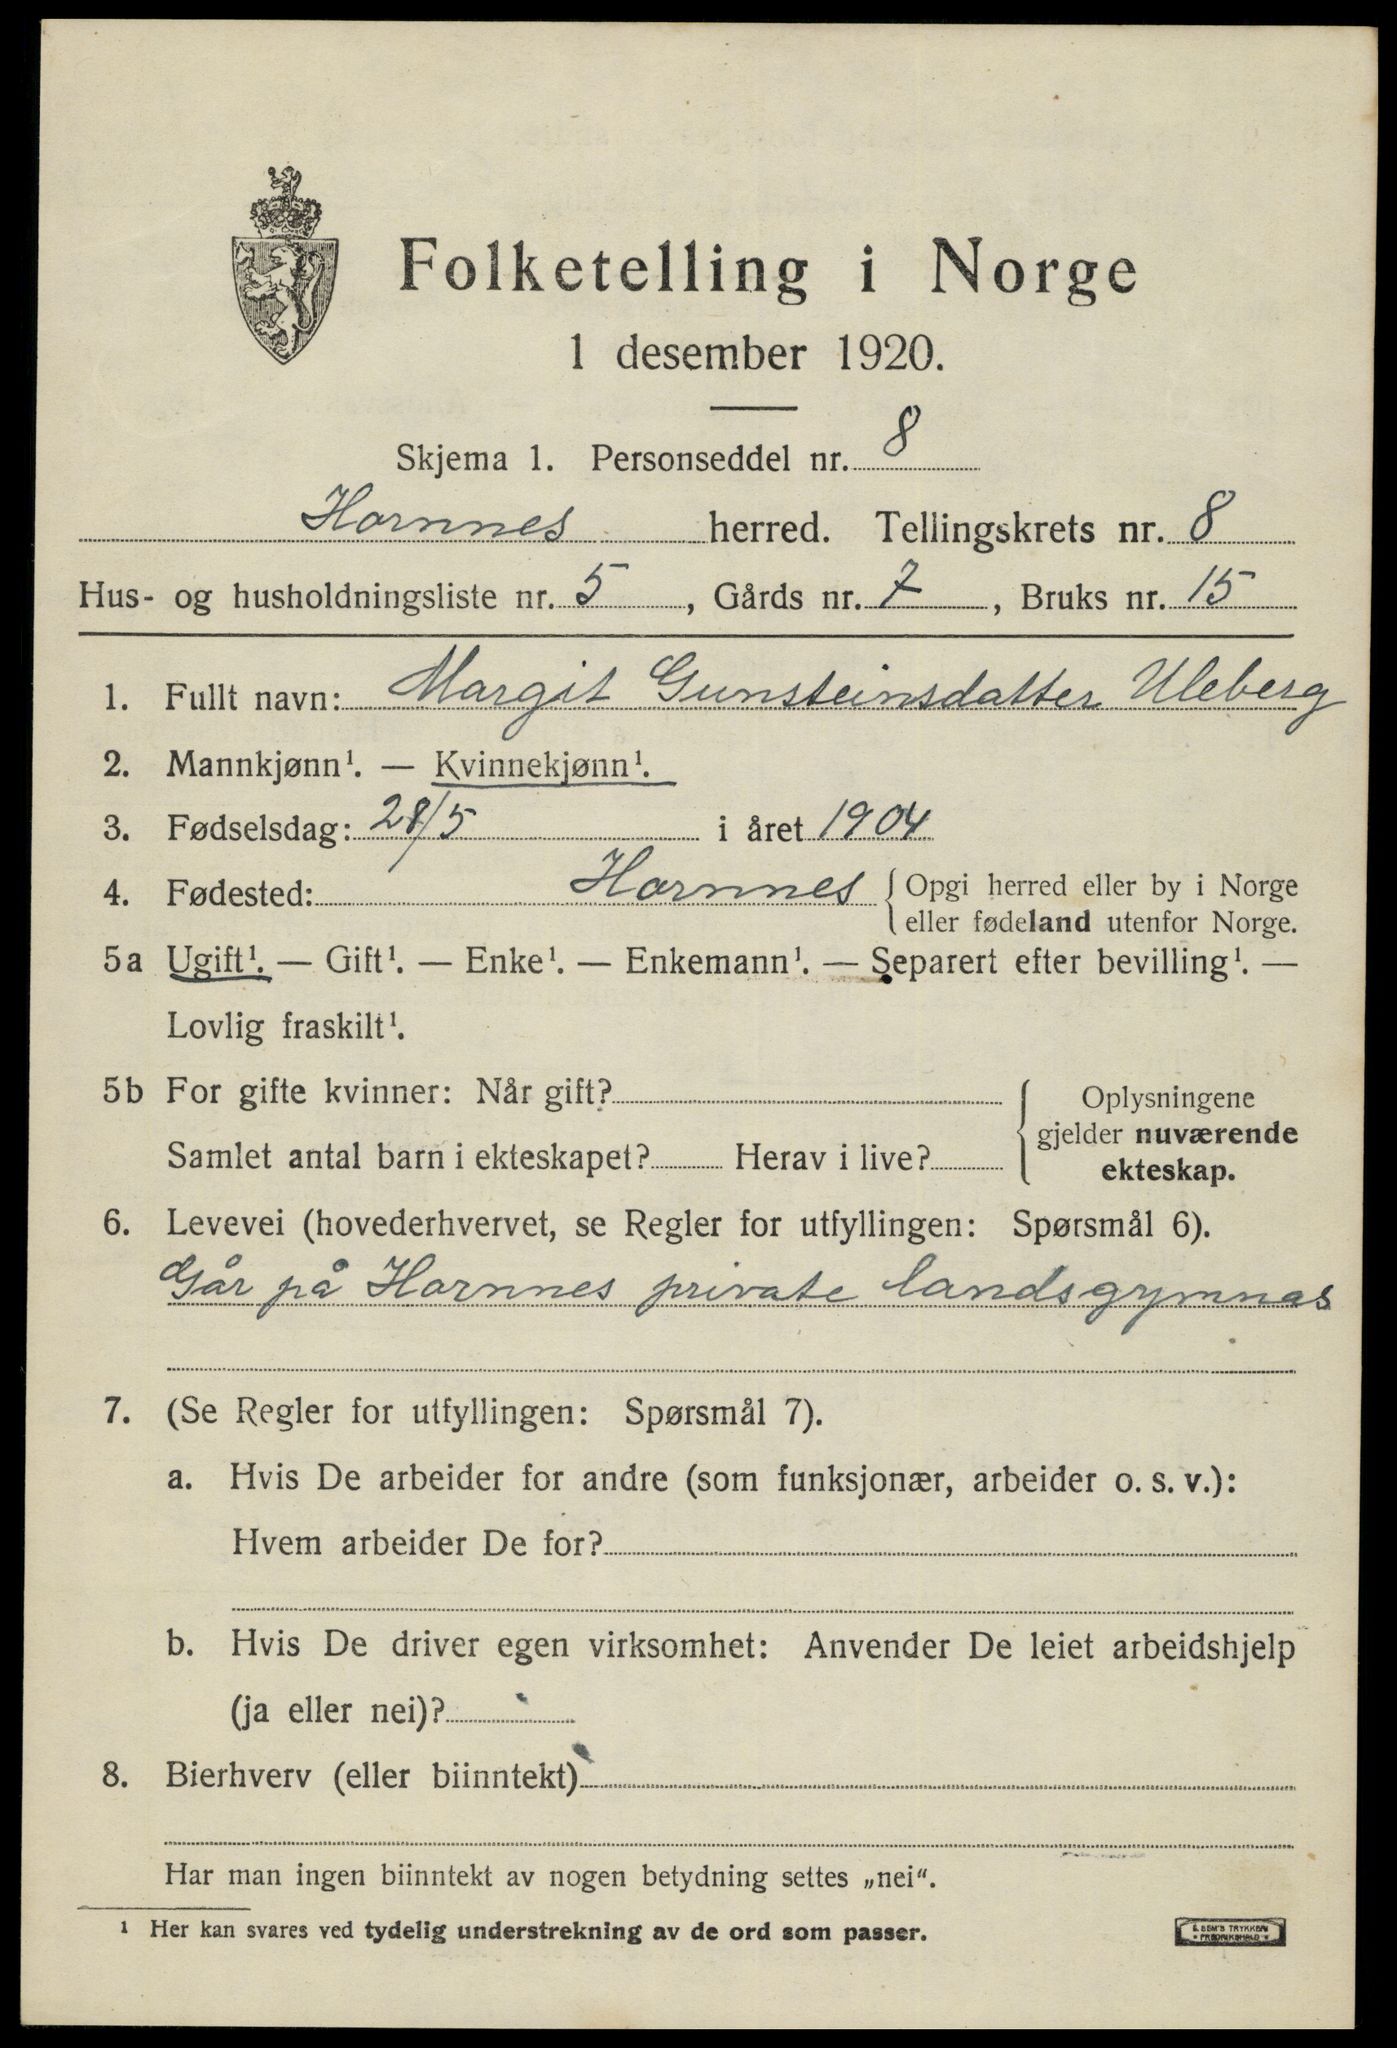 Folketelling i Norge
1 desember 1920.
Skjema 1. Personseddel nr. 8
Hornnes herred. Tellingskrets nr. 8
Hus- og husholdningsliste nr. 5, Gårds nr. 7, Bruks nr. 15
1. Fullt navn: Margit Gunsteinsdatter Uleberg
2. Mannkjønn¹. — Kvinnekjønn¹.
3. Fødselsdag: 28/5 i året 1904
4. Fødested: Hornnes { Opgi herred eller by i Norge
eller fødeland utenfor Norge.
5a Ugift¹. — Gift¹. — Enke¹. — Enkemann¹. — Separert efter bevilling¹. —
Lovlig fraskilt¹.
5b For gifte kvinner: Når gift?
Samlet antal barn i ekteskapet? Herav i live?
{ Oplysningene
gjelder nuværende
ekteskap.
6. Levevei (hovederhvervet, se Regler for utfyllingen: Spørsmål 6).
Går på Hornnes private landsgymnas
7. (Se Regler for utfyllingen: Spørsmål 7).
a. Hvis De arbeider for andre (som funksjonær, arbeider o. s. v.):
Hvem arbeider De for?
b. Hvis De driver egen virksomhet: Anvender De leiet arbeidshjelp
(ja eller nei)?
8. Bierhverv (eller biinntekt)
Har man ingen biinntekt av nogen betydning settes „nei“.
¹ Her kan svares ved tydelig understrekning av de ord som passer.
E. SEM'S TRYKKERI
• FREDRIKSHALD •